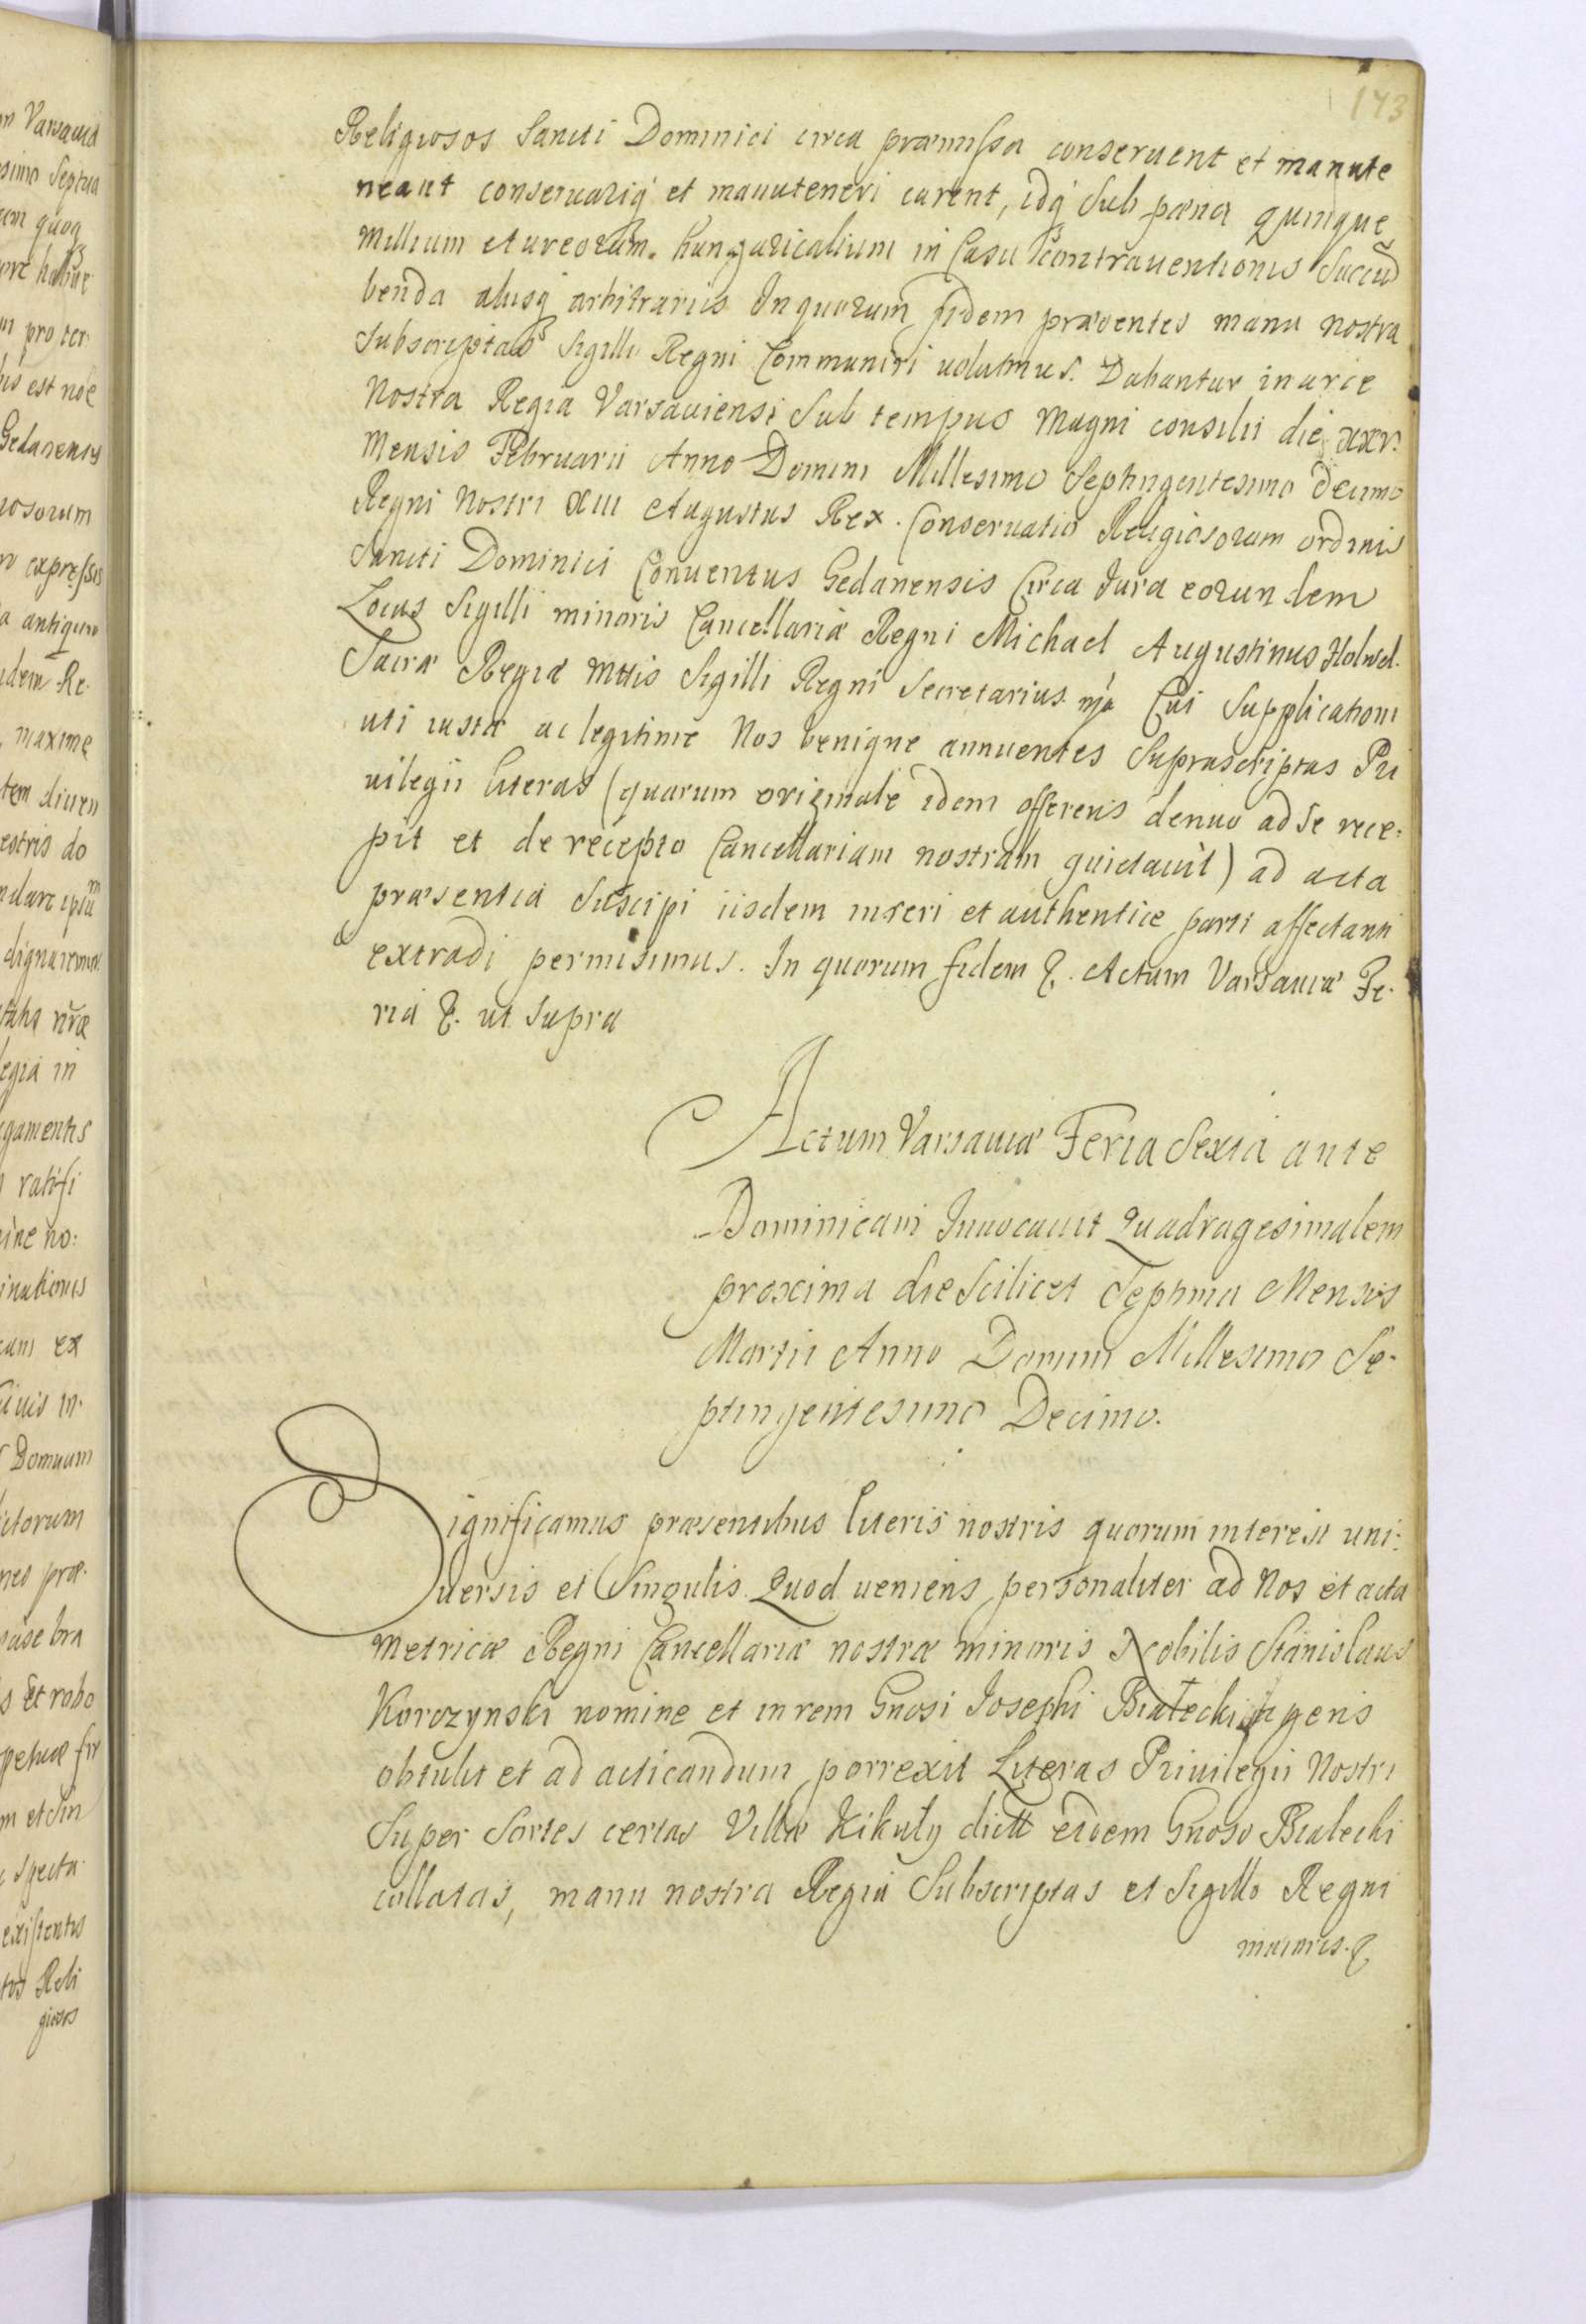 173
Religiosos Sancti Dominici circa præmissa conservent et manute
neant conservariq et manuteneri curent, idq sub pæna quinque
Millium Aureorum hungaricalium in Casu Contrauentionis succū
benda alusq arbitrarius In quorum fidem præsentes manu nostra
Subscriptas Sigillo Regni Communiri uoluimus. Dabantur in arce
Nostra Regia Varsauiensi Sub tempus Magni consilii die xxv.
Mensis Februarii Anno Domini Millesimo Septingentesimo decimo
Regni Nostri XIII Augustus Rex. Conseruatio Religiosorum ordinis
Sancti Dominici Conuentus Gedanensis Circa Jura eorundem
Locus Sigilli minoris Cancellariæ Regni Michael Augustinus Holwel.
Sacræ Regiæ Mttis Sigilli Regni Secretarius mp Cui Supplicationi
uti iustæ ac legitimæ Nos benigne annuentes Suprascriptas Pri
uilegii literas (quarum originale idem offerens denuo ad se rece:
pit et de recepto Cancellariam nostram quietauit) ad acta
præsentia Suscipi iisdem inseri et authentice parti affectanti
extradi permisimus. In quorum fidem &. Actum Varsauiæ Fe.
ria &. ut supra
Actum Varsauiæ Feria Sexta ante
Dominicam Inuocauit Quadragesimalem
proxima die Scilicet Septima Mensis
Martii Anno Domini Millesimo Se-
ptingentesimo Decimo.
Significamus præsentibus literis nostris quorum interest uni:
uersis et Singulis. Quod ueniens personaliter ad Nos et acta
Metricæ Regni Cancellariæ nostræ minoris Nobilis Stanislaus
Korczynski nomine et in rem Gnosi Josephi Białecki agens
obtulit et ad acticandum porrexit Literas Priuilegii Nostri
Super Sortes certas Villæ Kikuły dictt eidem Gnoso Bialecki
collatas, manu nostra Regia Subscriptas et Sigillo Regni
maioris. &